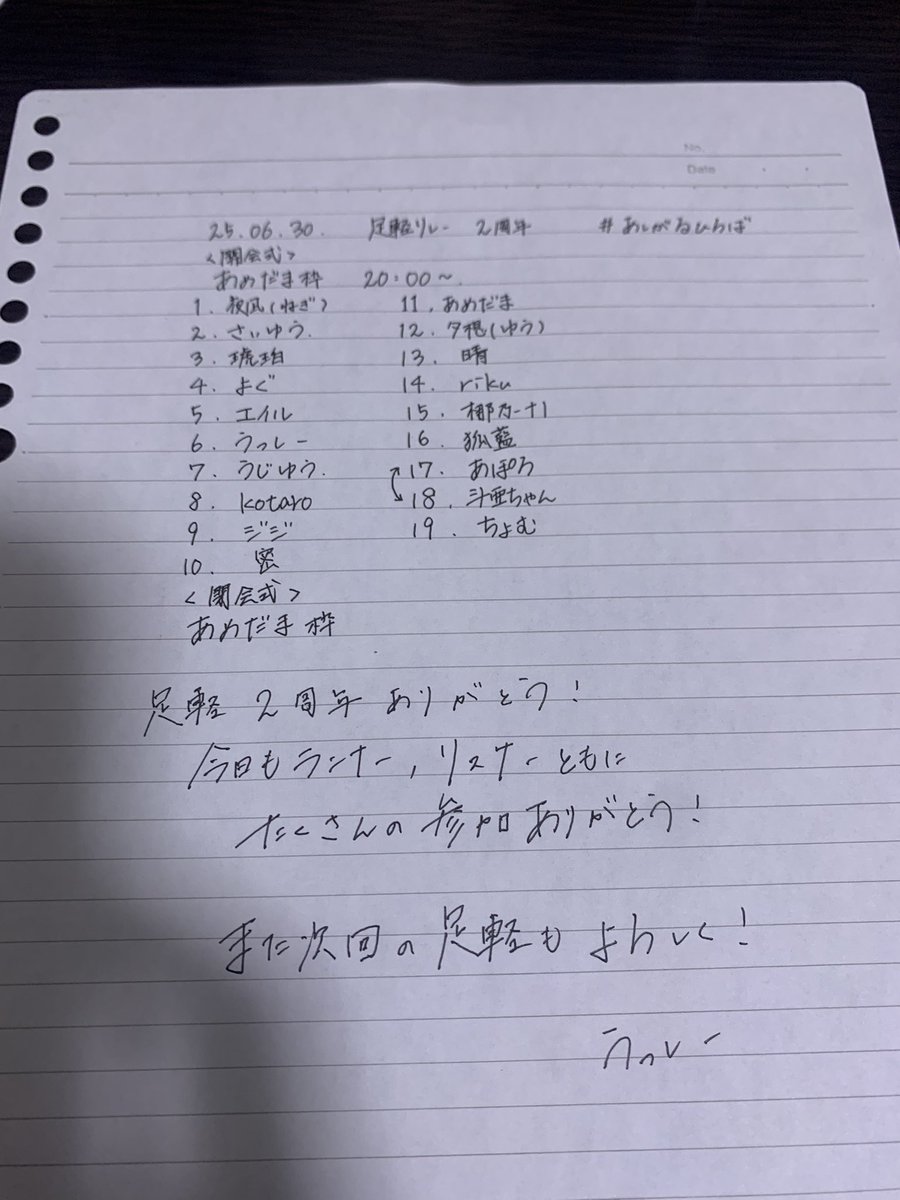 No.
Date
25.06.30. 足軽リレー 2周年 #あしがるひろば
<開会式>
あめだま枠 20:00~
1. 夜凪(ねぎ)
2. さいゆう.
3. 琥珀
4. よぐ
5. エイル
6. うっしー
7. うじゆう.
8. kotaro
9. ジジ
10. 密
11. あめだま
12. 夕穂(ゆう)
13. 晴
14. riku
15. 梛乃ーナ!
16. 狐藍
17. あぽろ
18. 斗亜ちゃん
19. ちょむ
<閉会式>
あめだま枠
足軽 2周年 ありがとう!
今日もランナー, リスナーともに
たくさんの参加ありがとう!
また次回の足軽もよろしく!
うっしー